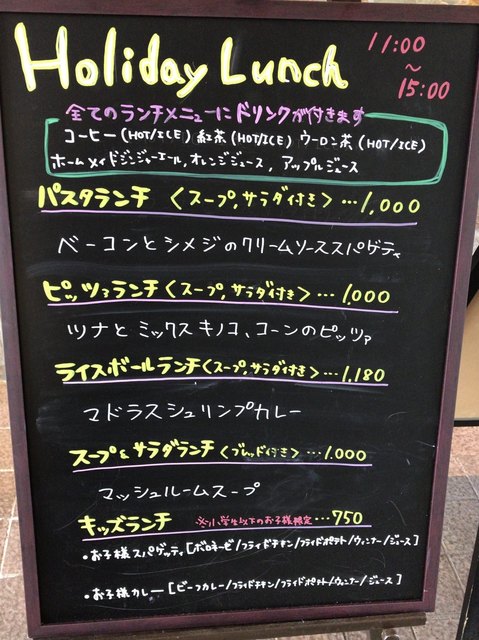 Holiday Lunch
11:00
～
15:00
全てのランチメニューにドリンクが付きます
コーヒー(HOT/ICE) 紅茶(HOT/ICE) ウーロン茶(HOT/ICE)
ホームメイドジンジャーエール, オレンジジュース, アップルジュース
パスタランチ <スープ,サラダ付き>…1,000
ベーコンとシメジのクリームソーススパゲティ
ピッツァランチ<スープ,サラダ付き>…1,000
ツナとミックスキノコ、コーンのピッツァ
ライスボールランチ<スープ,サラダ付き>…1,180
マドラスシュリンプカレー
スープ&サラダランチ<ブレッド付き>…1,000
マッシュルームスープ
キッズランチ ※小学生以下のお子様限定…750
・お子様スパゲッティ[ボロネーゼ/フライドチキン/フライドポテト/ウィンナー/ジュース]
・お子様カレー[ビーフカレー/フライドチキン/フライドポテト/ウィンナー/ジュース]